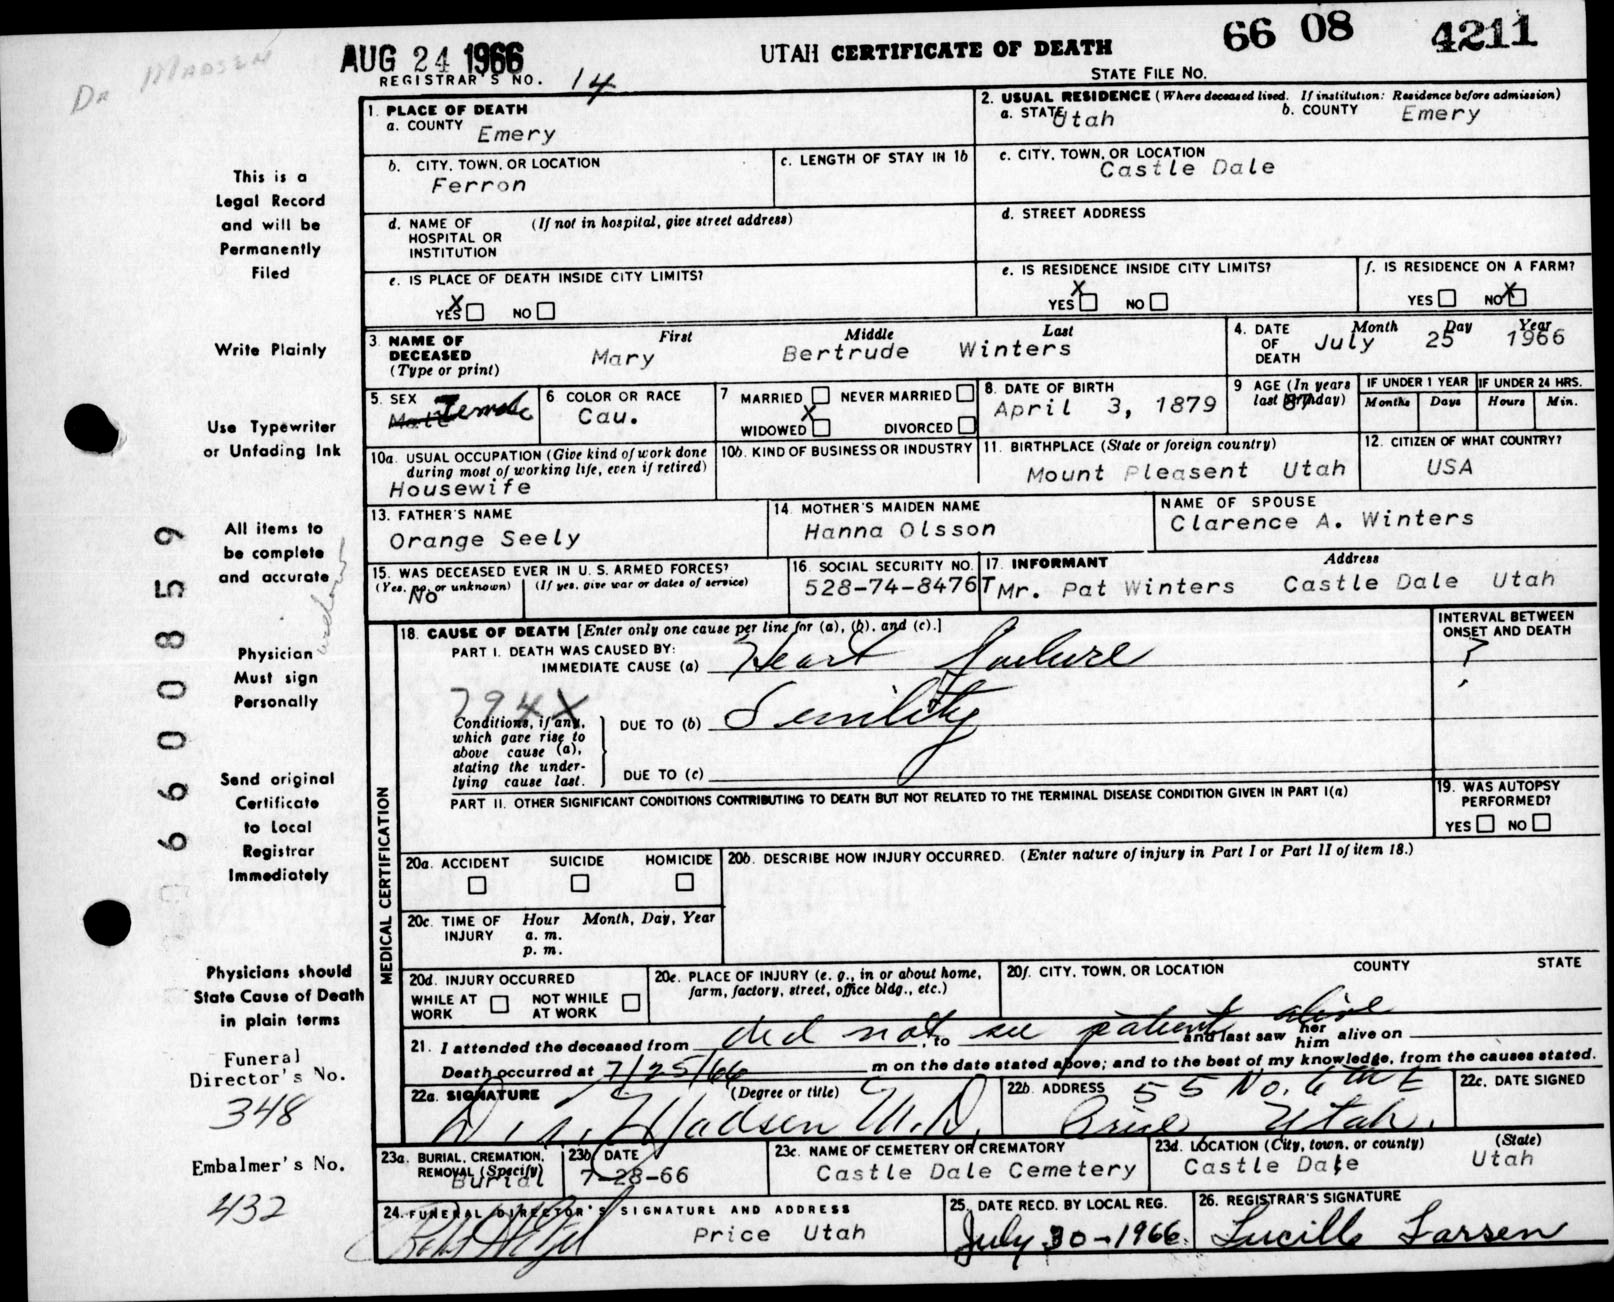 Dr Madsen
AUG 24 1966
UTAH CERTIFICATE OF DEATH
66 08 4211
REGISTRAR'S NO. 14
STATE FILE No.
This is a
Legal Record
and will be
Permanently
Filed
Write Plainly
Use Typewriter
or Unfading Ink
All items to
be complete
and accurate
Physician
Must sign
Personally
Send original
Certificate
to Local
Registrar
Immediately
Physicians should
State Cause of Death
in plain terms
Funeral
Director's No.
348
Embalmer's No.
432
66008859
1. PLACE OF DEATH
a. COUNTY Emery
2. USUAL RESIDENCE (Where deceased lived. If institution: Residence before admission)
a. STATE Utah b. COUNTY Emery
b. CITY, TOWN, OR LOCATION
Ferron
c. LENGTH OF STAY IN 1b
c. CITY, TOWN, OR LOCATION
Castle Dale
d. NAME OF HOSPITAL OR INSTITUTION (If not in hospital, give street address)
d. STREET ADDRESS
e. IS PLACE OF DEATH INSIDE CITY LIMITS?
YES X NO
e. IS RESIDENCE INSIDE CITY LIMITS?
YES X NO
f. IS RESIDENCE ON A FARM?
YES NO X
3. NAME OF DECEASED (Type or print)
First Middle Last
Mary Bertrude Winters
4. DATE OF DEATH
Month Day Year
July 25 1966
5. SEX
Male Female
6 COLOR OR RACE
Cau.
7 MARRIED NEVER MARRIED
X
WIDOWED DIVORCED
8. DATE OF BIRTH
April 3, 1879
9 AGE (In years last birthday)
87
IF UNDER 1 YEAR
Months Days
IF UNDER 24 HRS.
Hours Min.
10a. USUAL OCCUPATION (Give kind of work done during most of working life, even if retired)
Housewife
10b. KIND OF BUSINESS OR INDUSTRY
11. BIRTHPLACE (State or foreign country)
Mount Pleasent Utah
12. CITIZEN OF WHAT COUNTRY?
USA
13. FATHER'S NAME
Orange Seely
14. MOTHER'S MAIDEN NAME
Hanna Olsson
NAME OF SPOUSE
Clarence A. Winters
15. WAS DECEASED EVER IN U. S. ARMED FORCES?
(Yes, no, or unknown) (If yes, give war or dates of service)
No
16. SOCIAL SECURITY NO.
528-74-8476T
17. INFORMANT Address
Mr. Pat Winters Castle Dale Utah
MEDICAL CERTIFICATION
18. CAUSE OF DEATH [Enter only one cause per line for (a), (b), and (c).]
PART I. DEATH WAS CAUSED BY:
IMMEDIATE CAUSE (a) Heart Failure
INTERVAL BETWEEN ONSET AND DEATH
?
794X
Conditions, if any, which gave rise to above cause (a), stating the underlying cause last.
DUE TO (b) Senility
DUE TO (c)
PART II. OTHER SIGNIFICANT CONDITIONS CONTRIBUTING TO DEATH BUT NOT RELATED TO THE TERMINAL DISEASE CONDITION GIVEN IN PART I(a)
19. WAS AUTOPSY PERFORMED?
YES NO
20a. ACCIDENT SUICIDE HOMICIDE
20b. DESCRIBE HOW INJURY OCCURRED. (Enter nature of injury in Part I or Part II of item 18.)
20c. TIME OF INJURY Hour Month, Day, Year
a. m.
p. m.
20d. INJURY OCCURRED
WHILE AT WORK NOT WHILE AT WORK
20e. PLACE OF INJURY (e. g., in or about home, farm, factory, street, office bldg., etc.)
20f. CITY, TOWN, OR LOCATION COUNTY STATE
21. I attended the deceased from did not , to see patient alive and last saw her him alive on
Death occurred at 7/25/66 m on the date stated above; and to the best of my knowledge, from the causes stated.
22a. SIGNATURE (Degree or title)
Madsen M.D.
22b. ADDRESS 55 No. 6th E
Price Utah.
22c. DATE SIGNED
23a. BURIAL, CREMATION, REMOVAL (Specify)
Burial
23b. DATE
7-28-66
23c. NAME OF CEMETERY OR CREMATORY
Castle Dale Cemetery
23d. LOCATION (City, town, or county) (State)
Castle Dale Utah
24. FUNERAL DIRECTOR'S SIGNATURE AND ADDRESS
Price Utah
25. DATE RECD. BY LOCAL REG.
July 30-1966
26. REGISTRAR'S SIGNATURE
Lucille Larsen